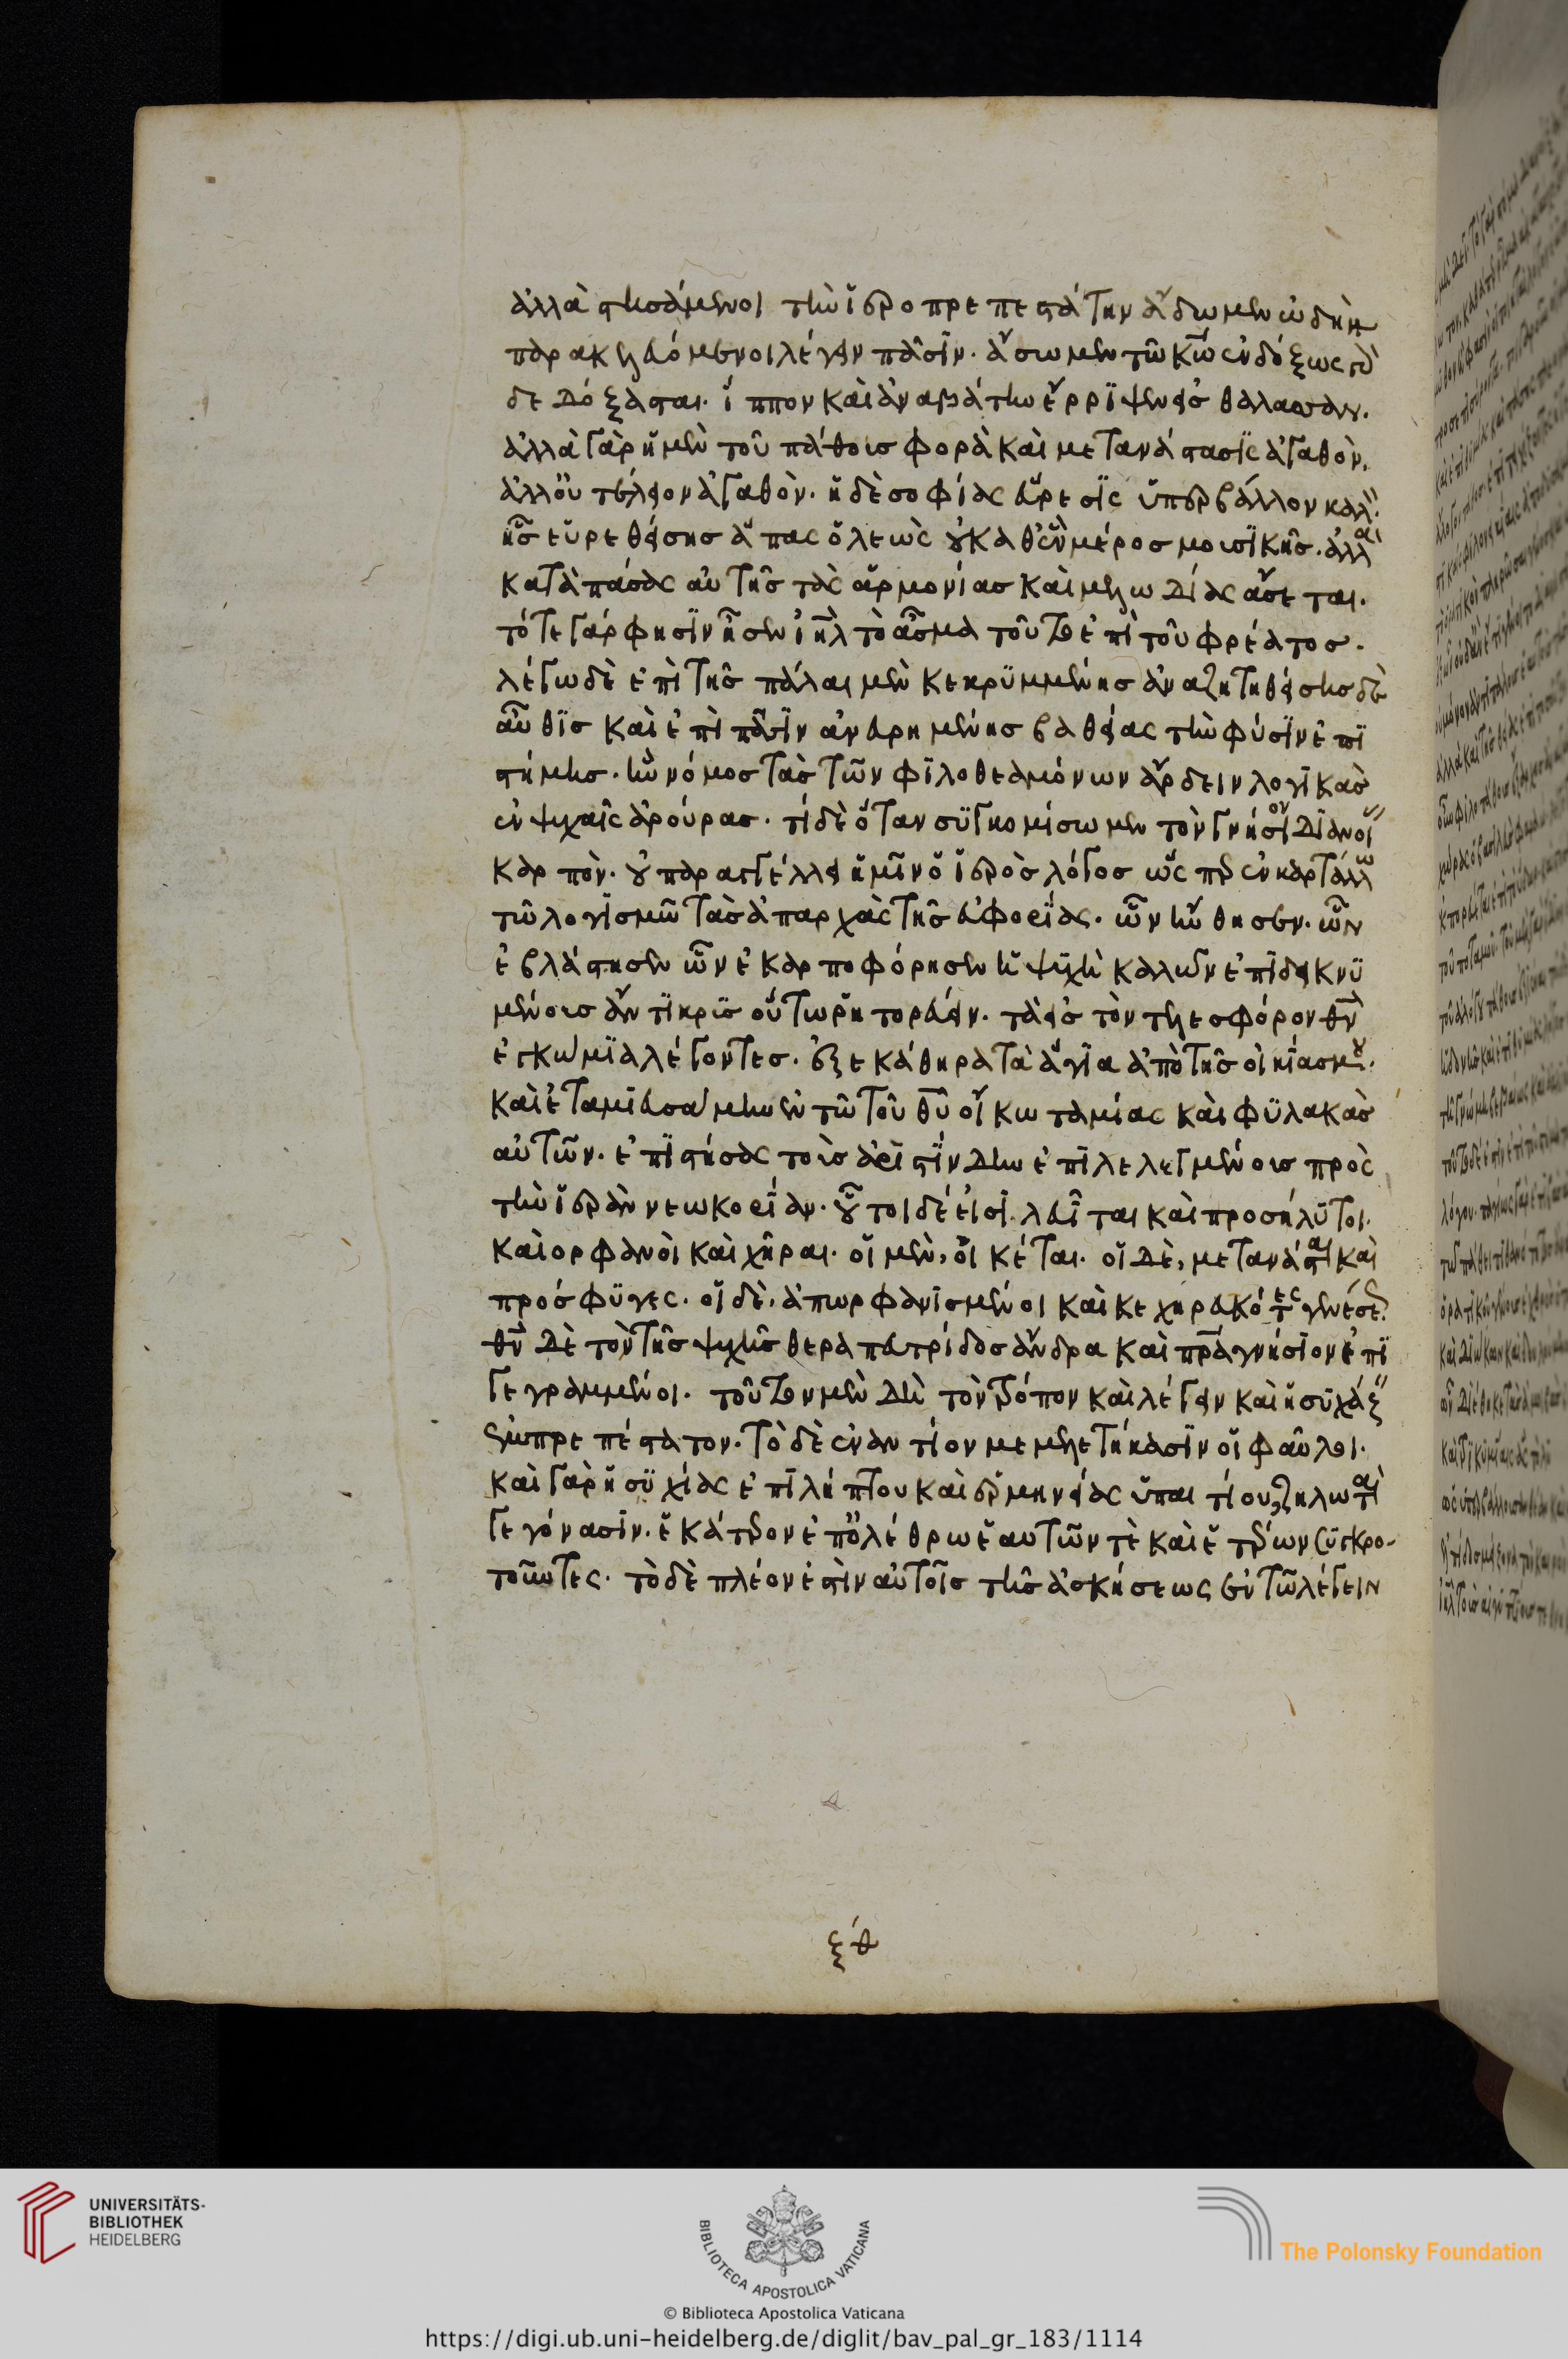 ἀλλὰ στησάμενοι τὴν ἱεροπρεπεστάτην ἄδωμεν ὠδὴν
παρακελευόμενοι λέγειν πᾶσιν. ἄσωμεν τῶ κῶ ἐνδόξως γὰρ
δεδόξασται. ἵππον καὶ ἀναβάτην ἔρριψεν εἰσ θάλασσαν.
ἀλλὰ γὰρ ἡ μὲν τοῦ πάθους φορὰ καὶ μετανάστασις ἀγαθὸν.
ἀλλ' οὐ τέλειον ἀγαθὸν. ἡ δὲ σοφίας εὕρεσις ὑπερβάλλον καλ.
ἧσ εὑρεθείσησ ἅπας ὁ λεὼς οὐ καθ' ἓν μέροσ μουσικῆσ. ἀλλὰ
κατὰ πάσας αὐτῆσ τὰς ἁρμονίασ καὶ μελωδίας ἄσεται.
τότε γάρ φησιν ἦσεν ιηλ τὸ ἆσμα τοῦτο ἐπὶ τοῦ φρέατοσ.
λέγω δὲ ἐπὶ τῆσ πάλαι μὲν κεκρυμμένησ ἀναζητηθείσησ δὲ
αὖθισ καὶ ἐπὶ πᾶσιν ἀνευρημένησ βαθείας τὴν φύσιν ἐπι
στήμησ. ἧ νόμοσ τὰσ τῶν φιλοθεαμόνων ἄρδειν λογικὰσ
ἐν ψυχαῖς ἀρούρασ. τί δὲ ὅταν συγκομίσωμεν τὸν γνήσιον διανοί
καρπὸν. οὐ παραγγέλλει ἡμῖν ὁ ἱερὸσ λόγοσ ὥσπερ ἐν καρτάλλω
τῶ λογισμῶ τὰσ ἀπαρχὰς τῆσ εὐφορίας. ὧν ἤνθησεν. ὧν
ἐβλάστησεν ὧν ἐκαρποφόρησεν ἡ ψυχὴ καλῶν ἐπιδεικνυ
μένουσ ἄντικρυσ οὕτω ῥητορεύειν. τὰ εἰσ τὸν τελεσφόρον θν
ἐγκώμια λέγοντεσ. ἐξεκάθηρα τὰ ἅγια ἀπὸ τῆσ οἰκίασ μου.
καὶ ἐταμιευσάμην ἐν τῶ τοῦ θυ οἴκω ταμίας καὶ φύλακασ
αὐτῶν. ἐπιστήσας τοὺσ ἀριστίνδην ἐπιλελεγμένουσ πρὸς
τὴν ἱερὰν νεωκορίαν. οὗτοι δέ εἰσι. λευῖται καὶ προσήλυτοι.
καὶ ορφανοὶ καὶ χῆραι. οἱ μὲν, οἱ κέται. οἱ δὲ, μετανάσται καὶ
πρόσφυγες. οἱ δὲ, ἀπωρφανισμένοι καὶ κεχηρευκότες γενέσε.
θν δὲ τὸν τῆσ ψυχῆσ θεραπευτρίδοσ ἄνδρα καὶ πρα γνήσιον ἐπι
γεγραμμένοι. τοῦτον μὲν δὴ τὸν τρόπον καὶ λέγειν καὶ ἡσυχάζ
εἰν πρεπέστατον. τὸ δὲ ἐναντίον μεμελετήκασιν οἱ φαῦλοι.
καὶ γὰρ ἡσυχίας ἐπιλήπτου καὶ ἑρμηνείας ὑπαιτίου, ζηλωταὶ
γεγόνασιν. ἑκάτερον ἐπ' ὀλέθρω ἑαυτῶν τὲ καὶ ἑτέρων συγκρο-
τοῦντες. τὸ δὲ πλέον ἐστὶν αὐτοῖσ τῆσ ἀσκήσεως ἐν τῶ λέγειν
ξθ
UNIVERSITÄTS-
BIBLIOTHEK
HEIDELBERG
BIBLIOTECA APOSTOLICA VATICANA
The Polonsky Foundation
© Biblioteca Apostolica Vaticana
https://digi.ub.uni-heidelberg.de/diglit/bav_pal_gr_183/1114